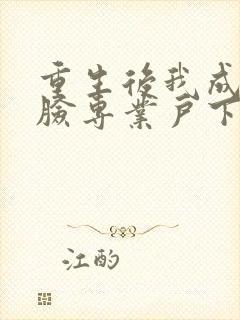 重生後我成
臉專業戶下
江酌